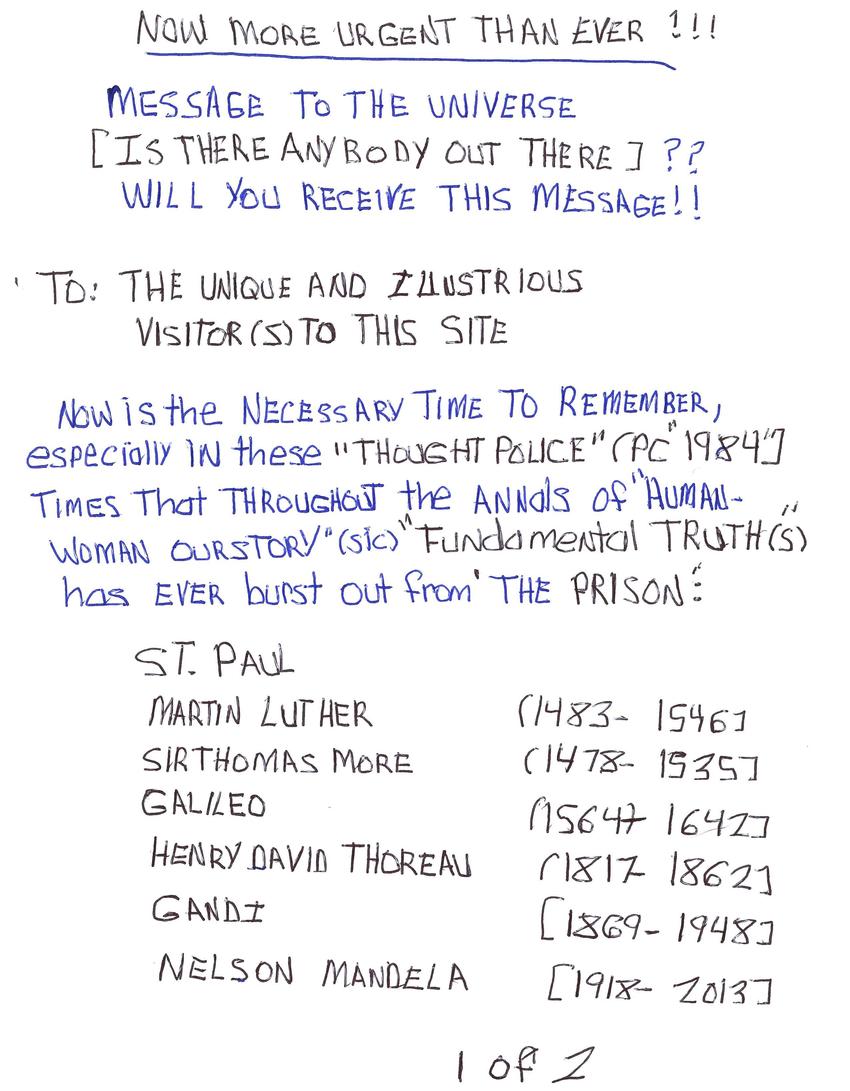 NOW MORE URGENT THAN EVER !!!
MESSAGE TO THE UNIVERSE
[IS THERE ANYBODY OUT THERE] ??
WILL YOU RECEIVE THIS MESSAGE!!
TO: THE UNIQUE AND ILLUSTRIOUS
VISITOR(S) TO THIS SITE
NOW is the NECESSARY TIME TO REMEMBER,
especially IN these "THOUGHT POLICE" (PC "1984"]
TIMES That THROUGHOUT the ANNals of "HUMAN-
WOMAN OURSTORY" (sic) "Fundamental TRUTH(S)"
has EVER burst out from' THE PRISON":
ST. PAUL
MARTIN LUTHER (1483- 1546]
SIR THOMAS MORE (1478- 1535]
GALILEO (1564- 1642]
HENRY DAVID THOREAU (1817- 1862]
GANDI [1869- 1948]
NELSON MANDELA [1918- 2013]
1 of 2